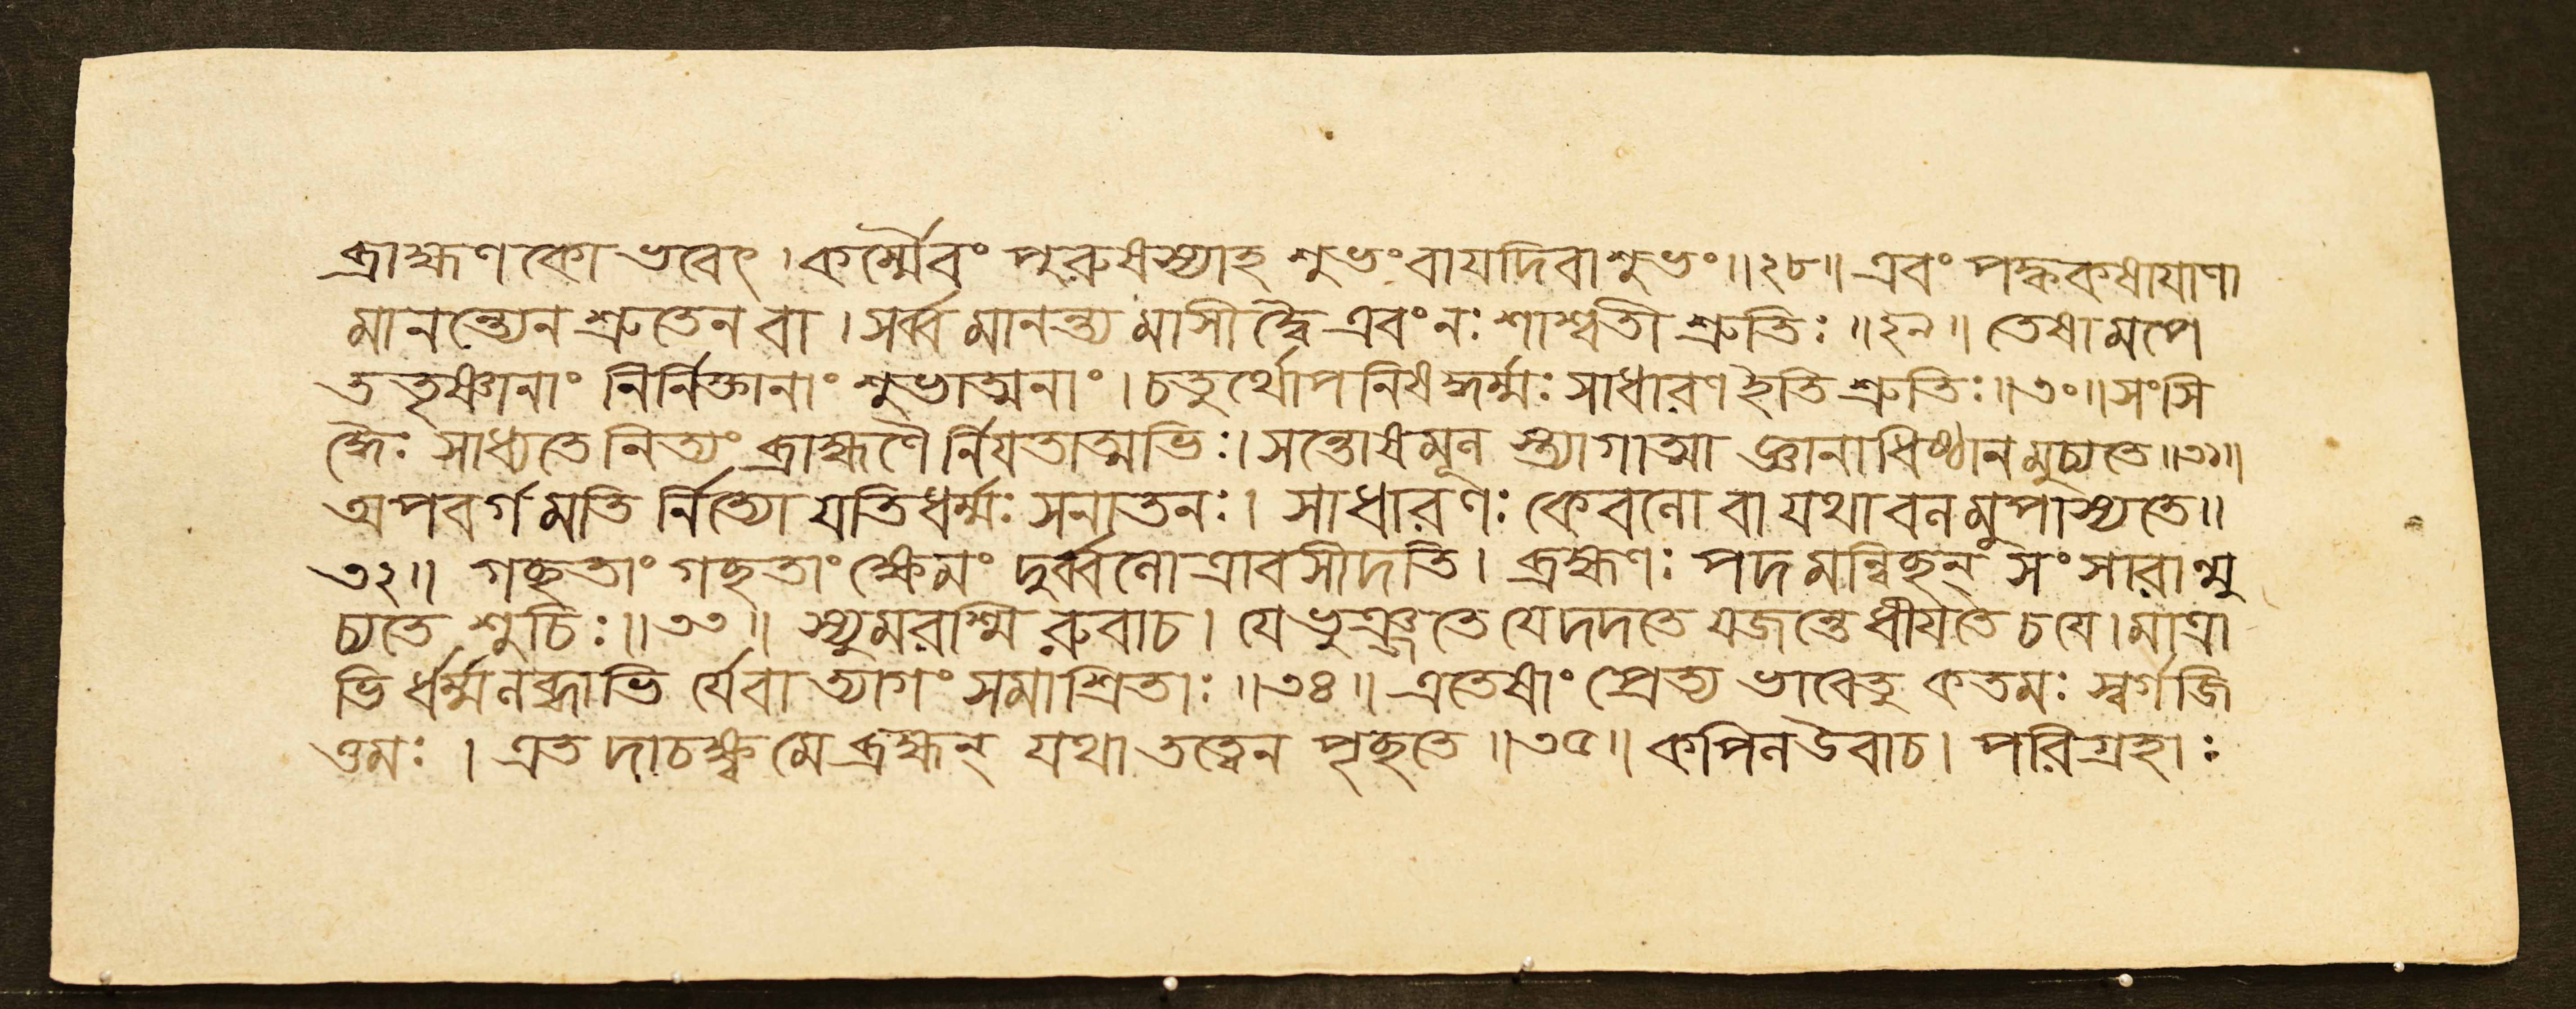 ব্রাহ্মণ কো ভবেৎ । কর্ম্মৈবং পুরুষস্যাহ শুভং বা যদি বাশুভং ॥ ২৮ ॥ এবং পক্বকষাযাণা
মানন্ত্যেন শ্রুতেন বা । সর্ব্বমানন্ত্যমাসীদ্বৈ এবং নঃ শাশ্বতী শ্রুতিঃ ॥ ২৯ ॥ তেষামপে
ততৃষ্ণানাং নির্নিক্তানাং শুভাত্মনাং । চতুর্থোপনিষদ্ধর্ম্মঃ সাধারণ ইতি শ্রুতিঃ ॥ ৩০ ॥ সংসি
দ্ধৈঃ সাধ্যতে নিত্যং ব্রাহ্মণৈর্নিযতাত্মভিঃ । সন্তোষমূল স্ত্যাগাত্মা জ্ঞানাধিষ্ঠানমুচ্যতে ॥ ৩১ ॥
অপবর্গমতি র্নিত্যো যতিধর্ম্মঃ সনাতনঃ । সাধারণঃ কেবলো বা যথাবলমুপাস্যতে ॥
৩২ ॥ গচ্ছতাং গচ্ছতাং ক্ষেমং দুর্ব্বলোত্রাবসীদতি । ব্রহ্মণঃ পদমন্বিচ্ছন্ সংসারান্মু
চ্যতে শুচিঃ ॥ ৩৩ ॥ স্যুমরশ্মি রুবাচ । যে ভুঞ্জতে যে দদতে যজন্তেধীযতে চ যে । মাত্রা
ভি র্ধর্ম্মলব্ধাভি র্যে বা ত্যাগং সমাশ্রিতাঃ ॥ ৩৪ ॥ এতেষাং প্রেত্য ভাবে তু কতমঃ স্বর্গজি
ত্তমঃ । এতদাচক্ষ্ব মে ব্রহ্মন্ যথা তত্বেন পৃচ্ছতে ॥ ৩৫ ॥ কপিল উবাচ । পরিগ্রহাঃ